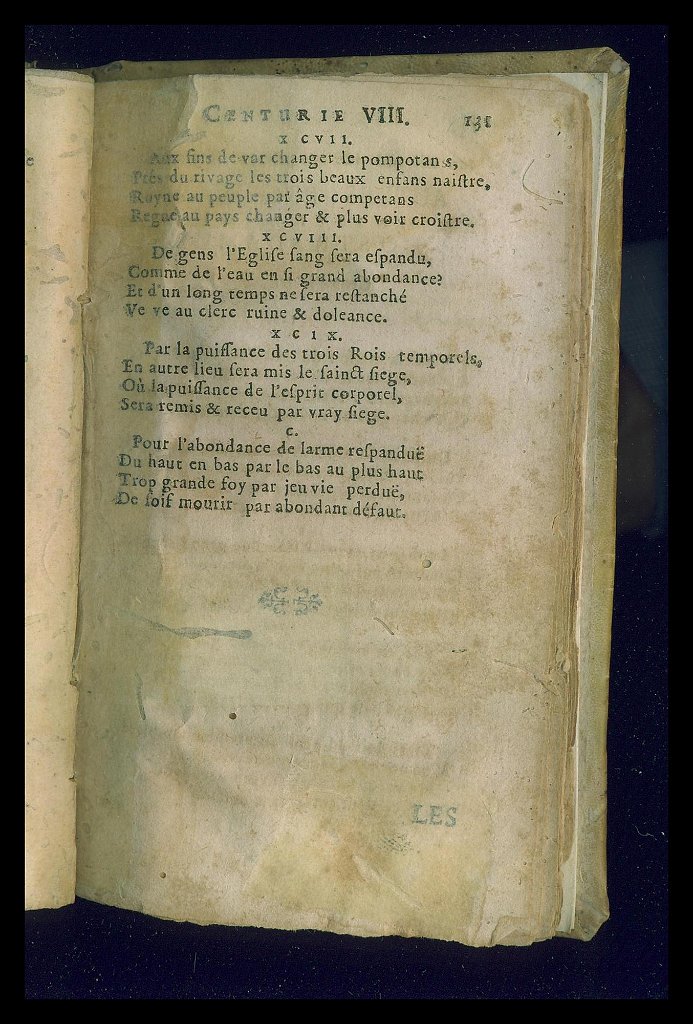 CENTURIE VIII. 131
XCVII.
Aux fins de var changer le pompotans,
Prés du rivage les trois beaux enfans naiſtre,
Ruyne au peuple par âge competans
Regne au pays changer & plus voir croiſtre.
XCVIII.
De gens l'Egliſe ſang ſera eſpandu,
Comme de l'eau en ſi grand abondance?
Et d'un long temps ne ſera reſtanché
Ve ve au clerc ruine & doleance.
XCIX.
Par la puiſſance des trois Rois temporels,
En autre lieu ſera mis le ſainct ſiege,
Où la puiſſance de l'eſprit corporel,
Sera remis & receu par vray ſiege.
C.
Pour l'abondance de larme reſpanduë
Du haut en bas par le bas au plus haut
Trop grande foy par jeu vie perduë,
De ſoif mourir par abondant défaut.
LES